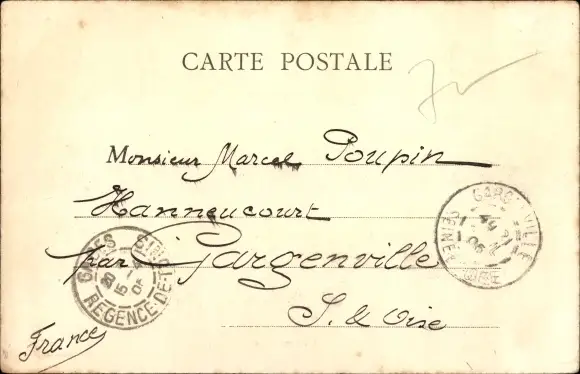 CARTE POSTALE
Monsieur Marcel Poupin
Hanneucourt
par Gargenville
S. & Oise
France
GABES
REGENCE-DE-TUNIS
GARGENVILLE
SEINE
OISE